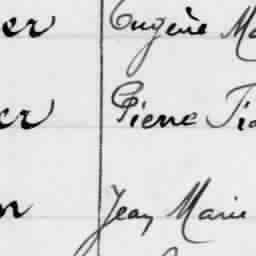 er Eugène Ma
er Pierre Fra
n Jean Marie